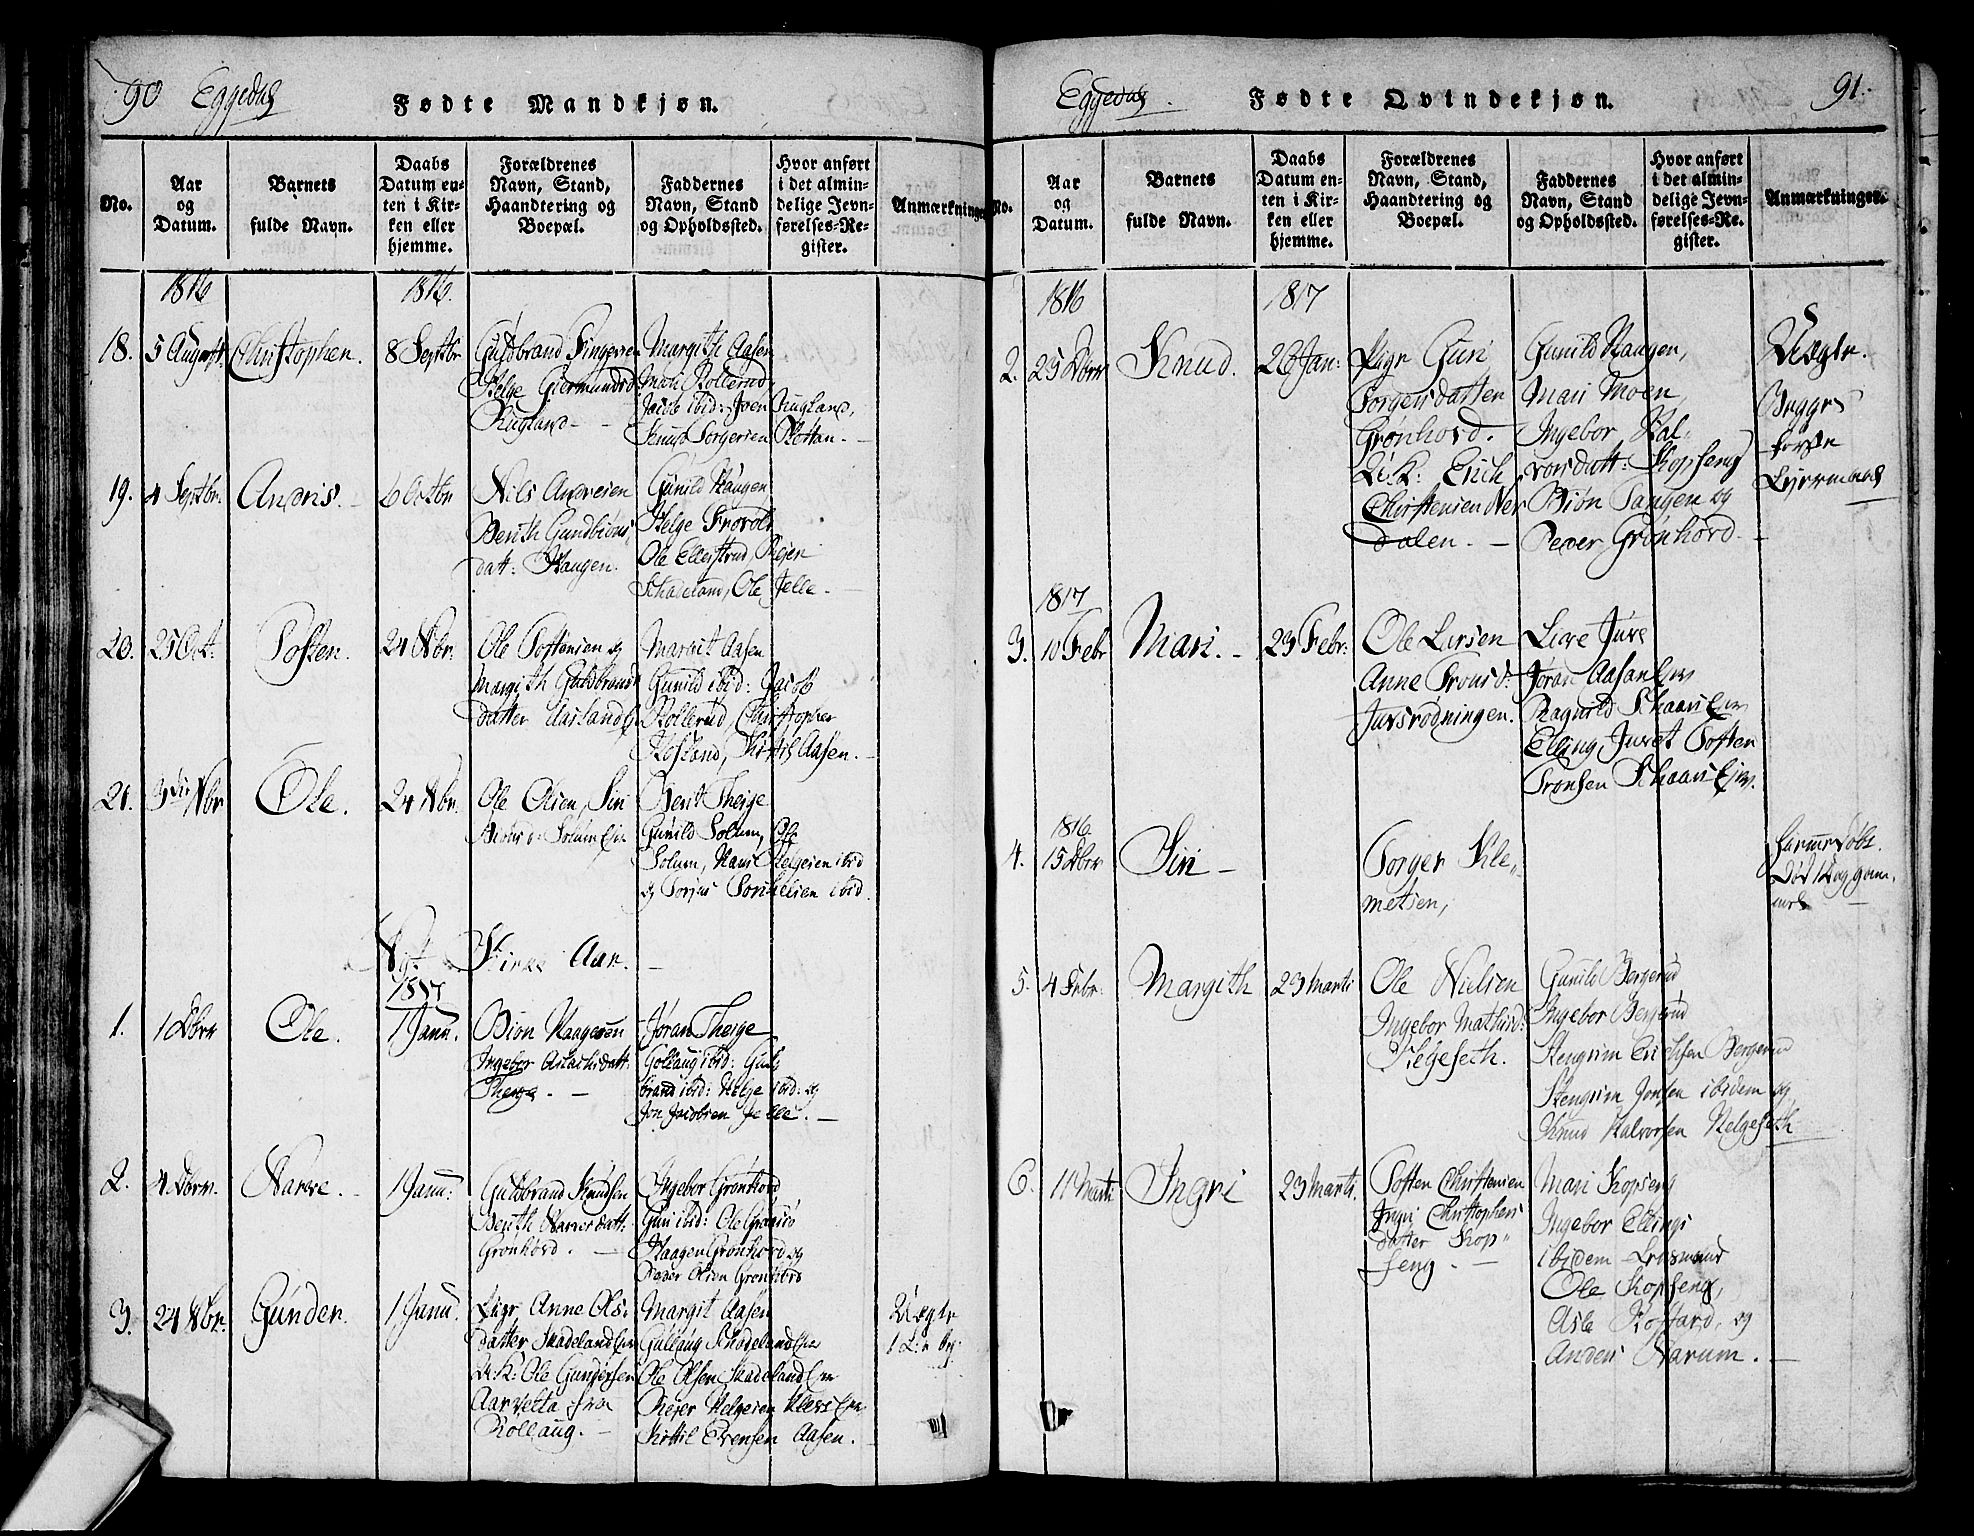 90 Eggedal
Fødte Mandkjøn.
No.
Aar og Datum.
Barnets fulde Navn.
Daabs Datum enten i Kirken eller hjemme.
Forældrenes Navn, Stand, Haandtering og Boepæl.
Faddernes Navn, Stand og Opholdssted.
Hvor anført i det almindelige Jevnførelses-Register.
Anmærkninger
1816
1816.
18. 5 August Christophen. 8 Septbr
Guldbrand
Helge Giermundsd
Rugland
Margith Aasen
Mari Rollerud
Jacob ibid: Joen Rugland,
Knud Torgersen Plottan.
19. 4 Septbr. Andris. 6 Octbr
Nils Andresen
Berith Gundbiøns
datt: Haugen.
Gunild Haugen
Helge Frovold
Ole Ellestrud
Skadeland, Ole Jelle.
20. 25 Oct: Tosten. 24 Nbr:
Ole Tostensen og
Margith Guldbrands
datter Aasland
Margit Aasen
Gunild ibid: Jacob
Rollerud, Christopher
Rosland, Kittil Aasen.
21. 3die Nbr Ole. 24 Nbr.
Ole Olsen, Siri
Solum Eje
Berit Theige
Gunild Solum, Ole
Solum, Hans Helgesen ibid
og Torjus ibid.
Nyt Kirke Aar.
1817
1. 1 Dbr Ole. 1 Janu.
Biøn Haagensen
Ingebor Aslachsdatt:
Theige.
Joran Theige
Gollaug ibid: Guld
brand ibid: Helge ibid: og
Jon Jacobsen Jelle.
2. 4 Dbr. Narve. 1 Janu:
Guldbrand Knudsen
Berith Narvesdatt:
Grønhovd.
Ingebor Grønhovd
Guri ibid: Ole
Haagen Grønhovd og
Peder Olsen Grønhovd
3. 24 Nbr. Gunder. 1 Janu.
Pige Anne Ols
datter Skadeland
U: K: Ole Gundersen
Aarvelta fra
Rollaug.
Margit Aasen
Gullaug Skadeland
Ole Olsen Skadeland
Reier Helgesen
Kittil Evensen Aasen.
Uægte
Eggedal.
Fødte Qvindekjøn.
91.
No.
Aar og Datum.
Barnets fulde Navn.
Daabs Datum enten i Kirken eller hjemme.
Forældrenes Navn, Stand, Haandtering og Boepæl.
Faddernes Navn, Stand og Opholdssted.
Hvor anført i det almindelige Jevnførelses-Register.
Anmærkninger.
1816
1817
2. 25 Dbr Knud. 26 Jan:
Pige Guri
Torgersdatter
Grønhovd.
U: K: Erich
Christensen Ner
dalen.
Gunild Haugen,
Mari Moen,
Ingebor Hal
vorsdatt: Kopseng
Biøn Tangen og
Peder Grønhovd.
Uægte.
Begges
første
Leiermaal
1817
3. 10 Febr Mari. 23 Febr:
Ole Larsen
Anne Tronsd:
Juvsrødningen.
Live Juve
Jøran Aasan
Ragnild
Elling Juvet Tosten
Tronsen
1816
4. 15 Dbr Siri
Torger Kle
metsen,
Hiemmedøbt.
Død 1 Dag gam
mel
5. 4 Febr: Margith 23 Marti
Ole Nielsen
Ingebor Mathisd:
Helgeseth.
Gunild Bergerud
Ingebor Bergerud
Stengrim Erichsen Bergerud
Stengrim Jonsen ibidem og
Knud Halvorsen Helgeseth
6. 11 Marti Ingri 23 Marti.
Tosten Christensen
Ingri Christophers
datter Kop
seng.
Mari Kopseng
Ingebor Ellings
ibidem
Ole Kopseng,
Asle, og
Anders Narum.